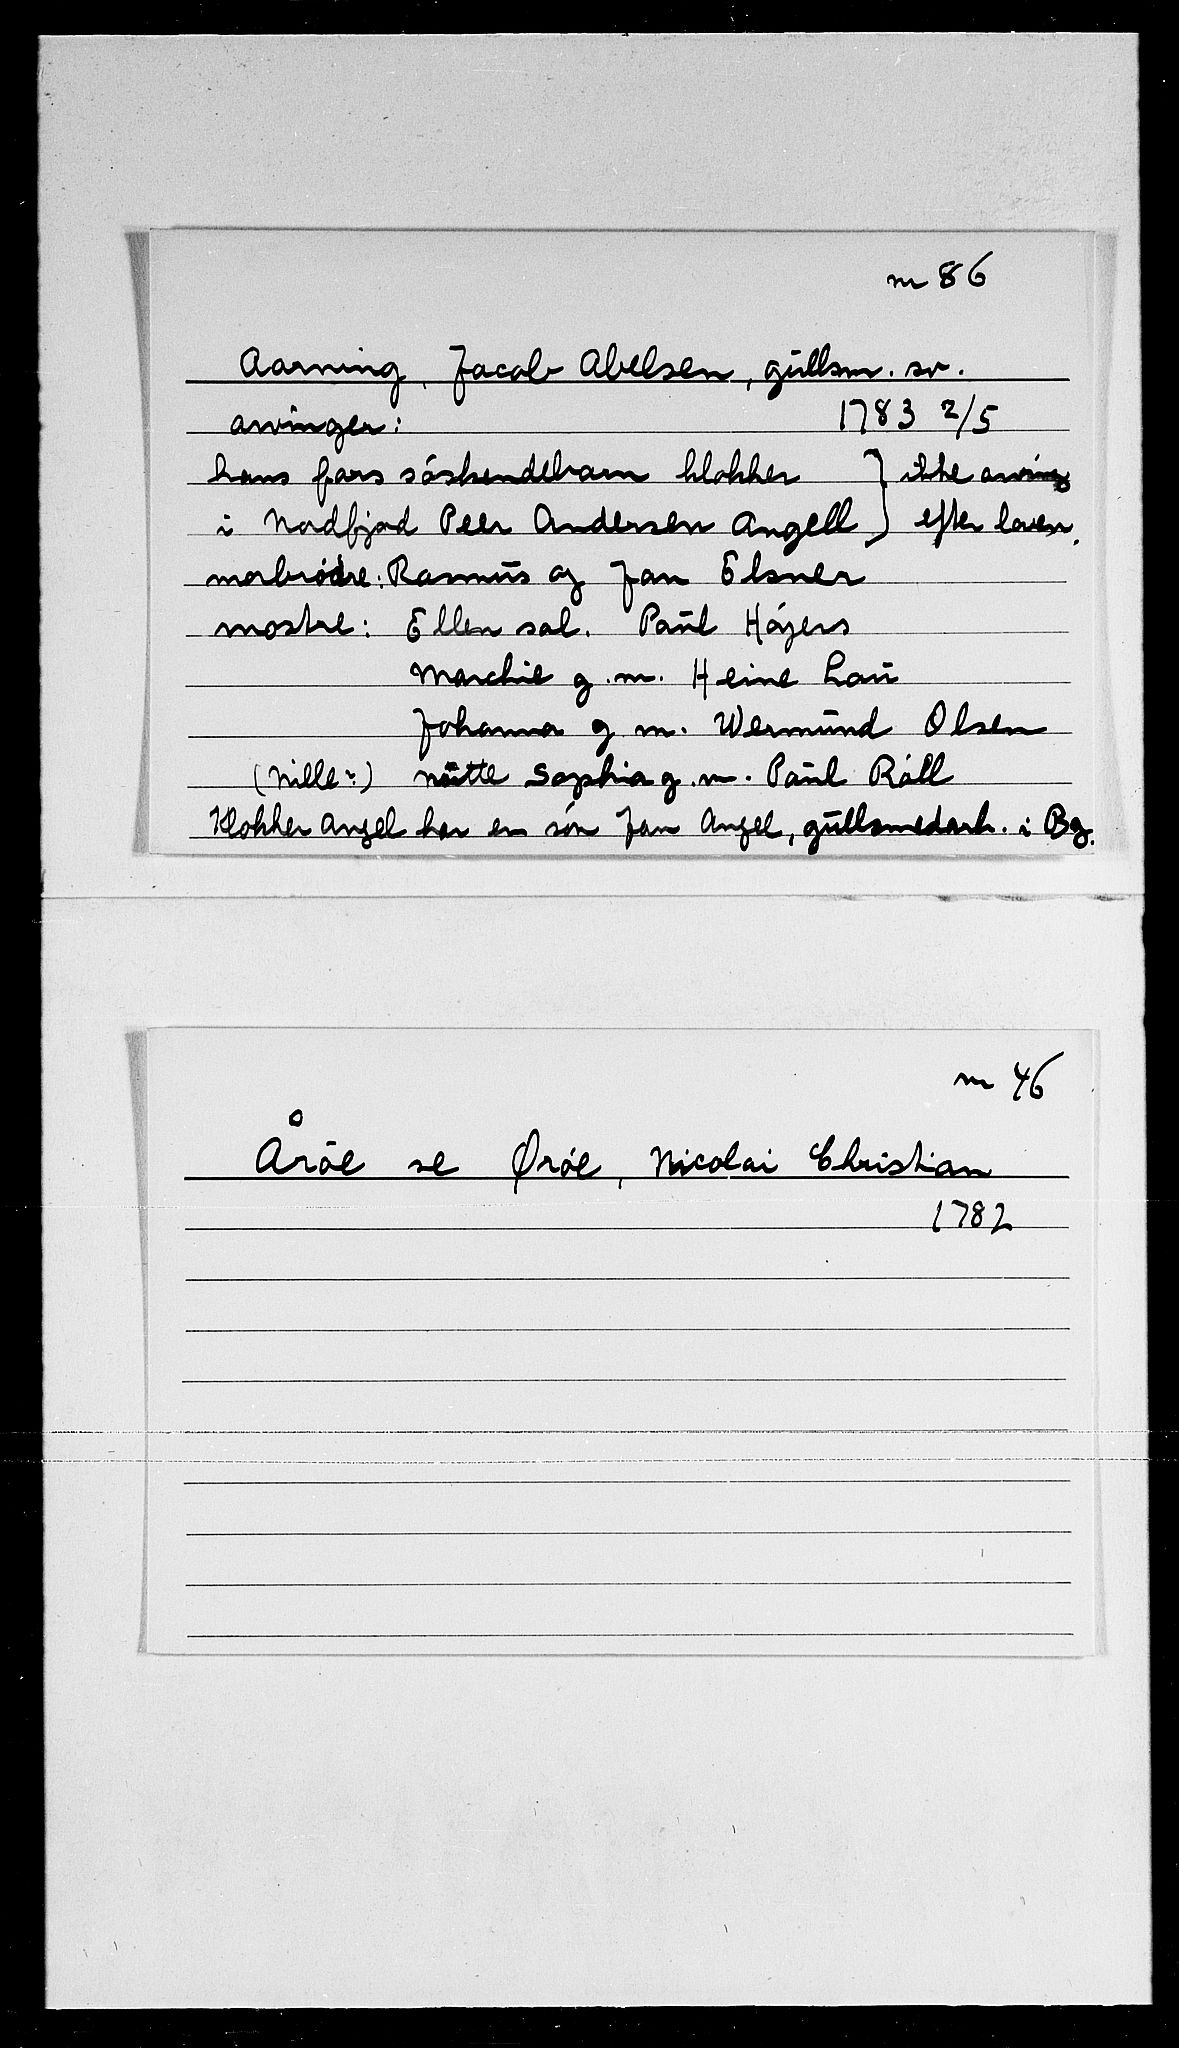 m 86
Aarning, Jacob Abelsen, gullsm. sv.
arvinger: 1783 2/5
hans fars söskendebarn klokker } ikke arving
i Nordfjord Peer Andersen Angell } efter loven.
morbrødre: Rasmus og Jan Elsner
mostre: Ellen sal. Paul Höyers
Marchie g.m. Heine Lau
Johanna g m. Wermund Olsen
(Nille?) Sophia g.m. Paul Röll
Klokker Angel har en sön Jan Angel, gullsmedark. i Bg.
m 46
Åröe se Øröe, Nicolai Christian
1782